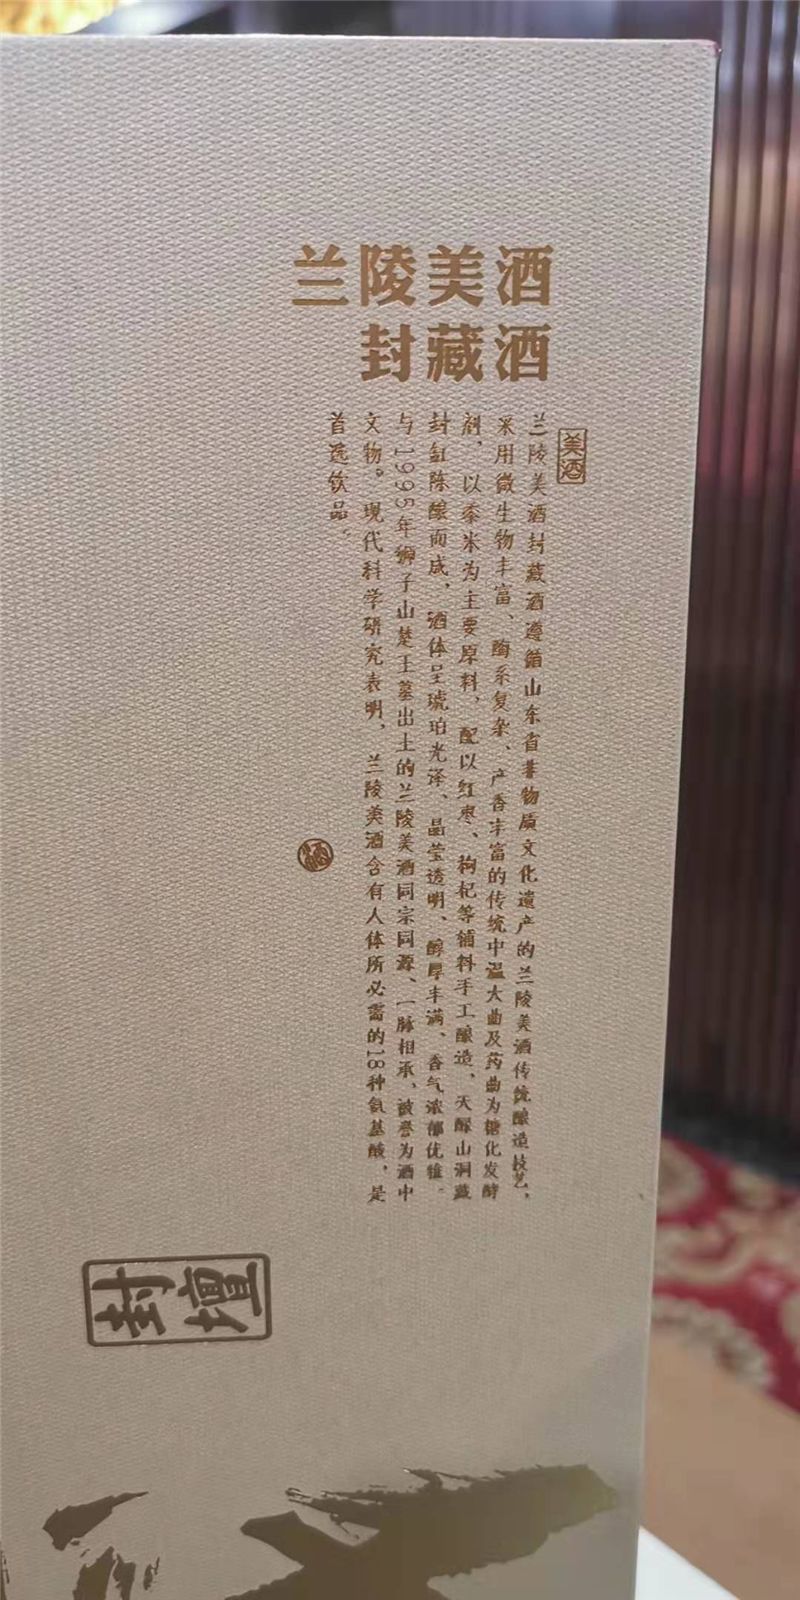 兰陵美酒
封藏酒
美酒
兰陵美酒封藏酒遵循山东省非物质文化遗产的兰陵美酒传统酿造技艺，
采用微生物丰富、酶系复杂、产香丰富的传统中温大曲及药曲为糖化发酵
剂，以黍米为主要原料，配以红枣、枸杞等辅料手工酿造，天醁山洞藏
封缸陈酿而成，酒体呈琥珀光泽、晶莹透明、醇厚丰满、香气浓郁优雅。
与1995年狮子山楚王墓出土的兰陵美酒同宗同源、一脉相承，被誉为酒中
文物。现代科学研究表明，兰陵美酒含有人体所必需的18种氨基酸，是
首选饮品。
酒
封壇